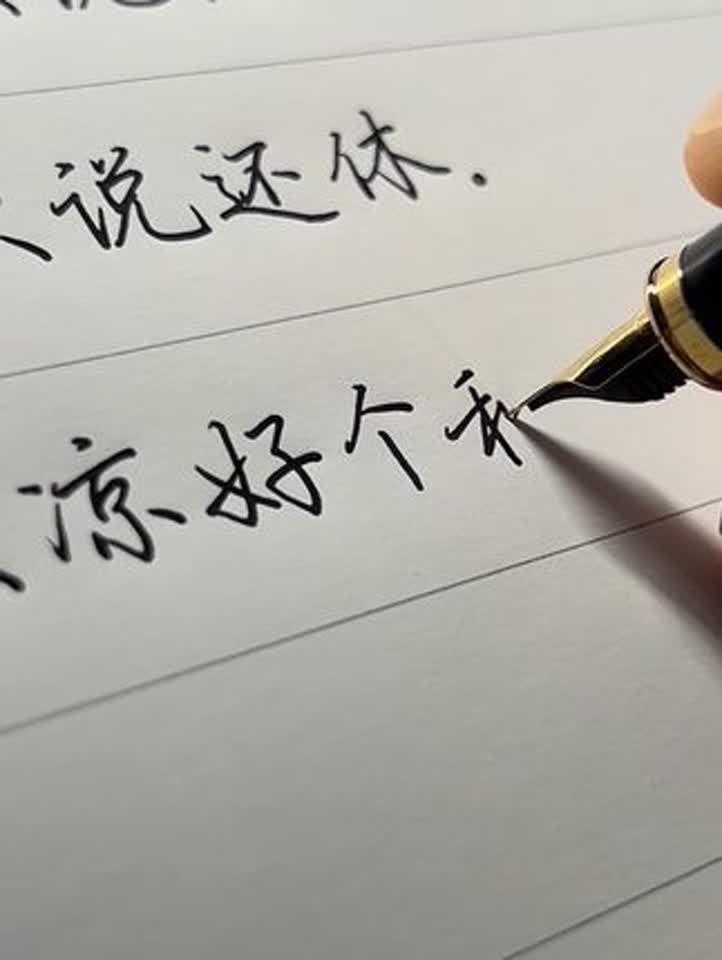 说还休.
凉好个